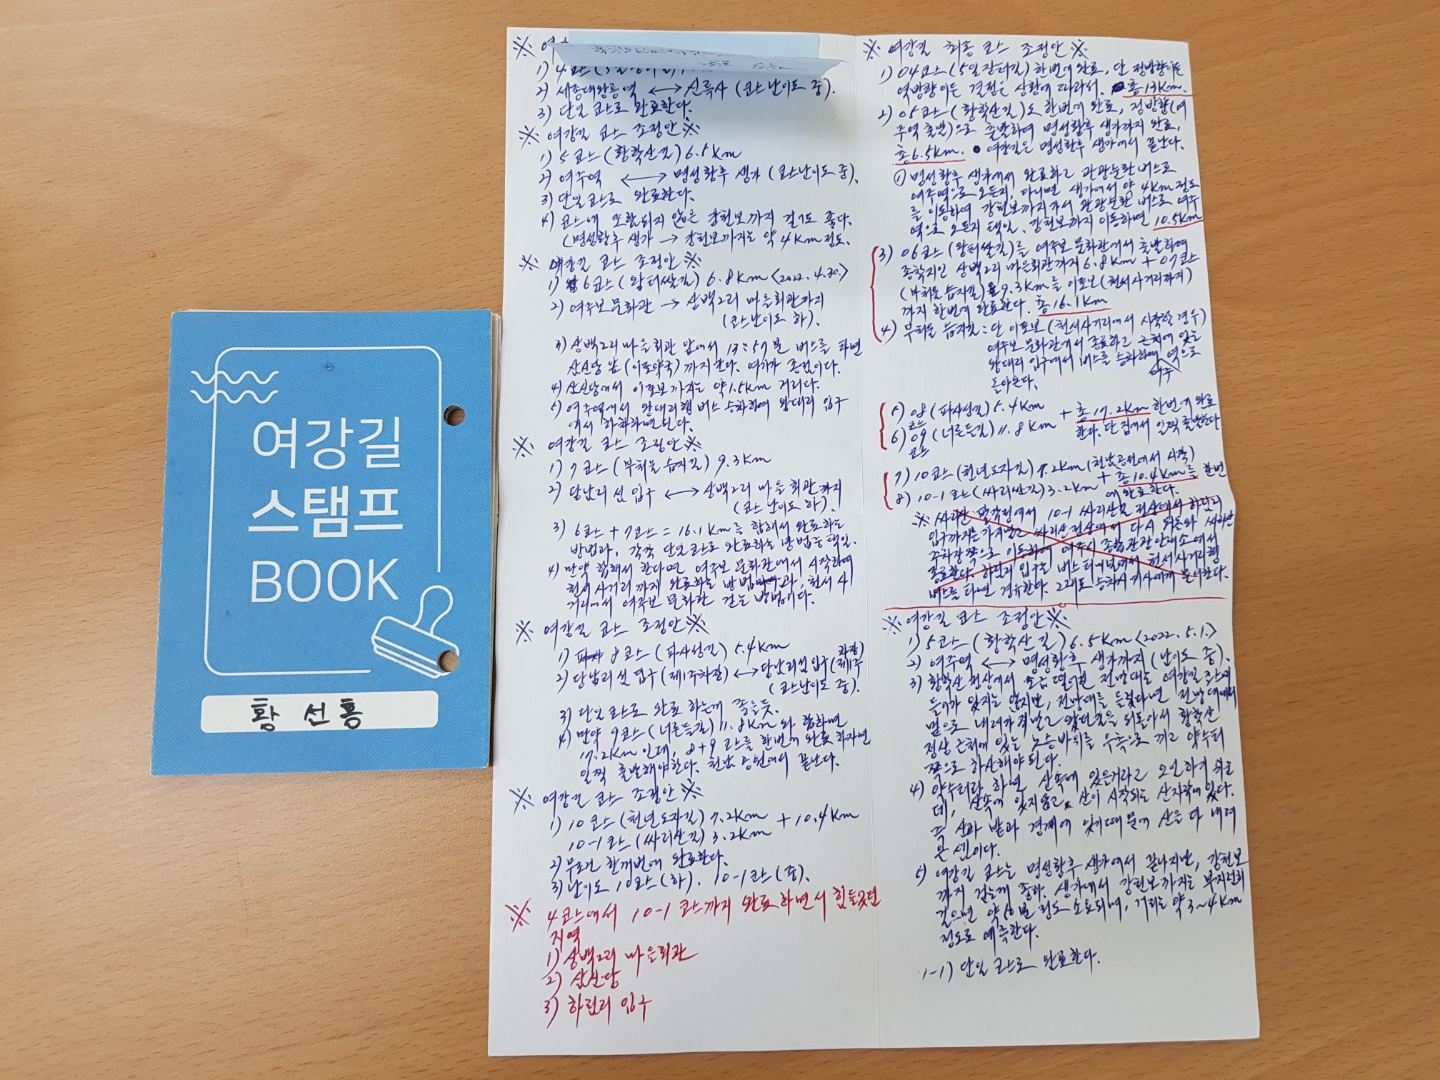 여강길
스탬프
BOOK
황선홍
1) 4코스
2) 세종대왕릉역 ↔ 신륵사 (코스난이도 중).
3) 단일 코스로 완료한다.
※ 여강길 코스 조정안 ※
1) 5코스 (황학산길) 6.5Km
2) 여주역 ↔ 명성황후 생가 (코스난이도 중).
3) 단일코스로 완료한다.
4) 코스에 포함되지 않은 강천보까지 걸어도 좋다.
(명성황후 생가 → 강천보까지는 약 4Km 정도.
※ 여강길 코스 조정안 ※
1) 6코스 (왕터쌀길) 6.8Km <2022.4.30.>
2) 여주보문화관 → 상백2리 마을회관까지
(코스난이도 하).
3) 상백2리 마을회관 앞에서 13:57분 버스를 타면
산신당 앞 (이포약국) 까지 간다. 여기가 종점이다.
4) 산신당에서 이포보까지는 약 1.5Km 거리다.
5) 여주역에서 왕대리행 버스 승차하여 왕대리 입구
에서 하차하면 된다.
※ 여강길 코스 조정안 ※
1) 7코스 (부처울 습지길) 9.3Km
2) 당남리섬 입구 ↔ 상백2리 마을회관까지
(코스 난이도 하).
3) 6코스 + 7코스 = 16.1Km를 합해서 완료하는
방법과, 각각 단일코스로 완료하는 방법중 택일.
4) 만약 합해서 한다면 여주보 문화관에서 시작하여
천서사거리까지 완료하는 방법과, 천서사
거리에서 여주보 문화관 걷는 방법이다.
※ 여강길 코스 조정안 ※
1) 8코스 (파사성길) 5.4Km
2) 당남리섬 입구 (제1주차장) ↔ 당남리섬 입구 (제1주차장)
(코스난이도 중).
3) 단일 코스로 완료 하는게 좋을듯.
4) 만약 9코스 (너른들길) 11.8Km 와 합하면
17.2Km 인데, 8+9 코스를 한번에 완료 하자면
일찍 출발해야한다. 천남 공원에서 끝난다.
※ 여강길 코스 조정안 ※
1) 10코스 (천년도자길) 7.2Km + 10.4Km
10-1코스 (싸리산길) 3.2Km
2) 무조건 한꺼번에 완료한다.
3) 난이도 10코스 (하). 10-1코스 (중).
※ 4코스에서 10-1 코스까지 완료하면서 힘들었던
지역
1) 상백2리 마을회관
2) 산신당
3) 하림리 입구
※ 여강길 최종 코스 조정안 ※
1) 04코스 (5일장터길) 한번에 완료, 단 정방향이든
역방향이든 결정은 상황에 따라서. 총 13Km.
2) 05코스 (황학산길)도 한번에 완료, 정방향 (여
주역 출발)으로 출발하여 명성황후 생가까지 완료,
총 6.5Km. 여강길은 명성황후 생가에서 끝난다.
① 명성황후 생가에서 완료하고 관광순환 버스로
여주역으로 오든지, 아니면 생가에서 약 4Km 정도
를 이동하여 강천보까지가서 관광순환 버스로 여주
역으로 오든지 택일. 강천보까지 이동하면 10.5Km
3) 06코스 (왕터쌀길)를 여주보 문화관에서 출발하여
종착지인 상백2리 마을회관까지 6.8Km + 07코스
(부처울 습지길) 9.3Km를 이포보 (천서사거리까지)
까지 한번에 완료한다. 총 16.1Km
4) 부처울 습지길: 단 이포보 (천서사거리에서 시작할 경우)
여주보 문화관에서 종료하고 근처에 있는
왕대리 입구에서 버스를 승차하여 여주역으로
돌아온다.
5) 08코스 (파사성길) 5.4Km + 총 17.2Km 한번에 완료
6) 09코스 (너른들길) 11.8Km 한다. 단 집에서 일찍 출발한다
7) 10코스 (천년도자길) 7.2Km (천남공원에서 시작)
8) 10-1코스 (싸리산길) 3.2Km + 총 10.4Km를 한번
에 완료한다.
버스를 타면 경유한다.
※ 여강길 코스 조정안 ※
1) 5코스 (황학산길) 6.5Km <2022.5.1.>
2) 여주역 ↔ 명성황후 생가까지 (난이도 중).
3) 황학산 정상에서 조금 떨어진 전망대는 여강길 코스에
들어가 있지는 않지만, 전망대를 들렸다면 전망대에서
밑으로 내려가지말고 왔던길을 되돌아서 황학산
정상 근처에 있는 노송바위를 우측으로 끼고 약수터
쪽으로 하산해야 된다.
4) 약수터라 하면 산속에 있을거라고 오인하기 쉬운
데, 산속에 있지않고 산이 시작되는 산자락에 있다.
즉 산과 밭과 경계에 있기때문에 산을 다 내려
온 셈이다.
5) 여강길 코스는 명성황후 생가에서 끝나지만, 강천보
까지 걷는게 좋다. 생가에서 강천보까지는 부지런히
걸으면 약 50분 정도 소요되며, 거리는 약 3~4Km
정도로 예측한다.
1-1) 단일 코스로 완료한다.